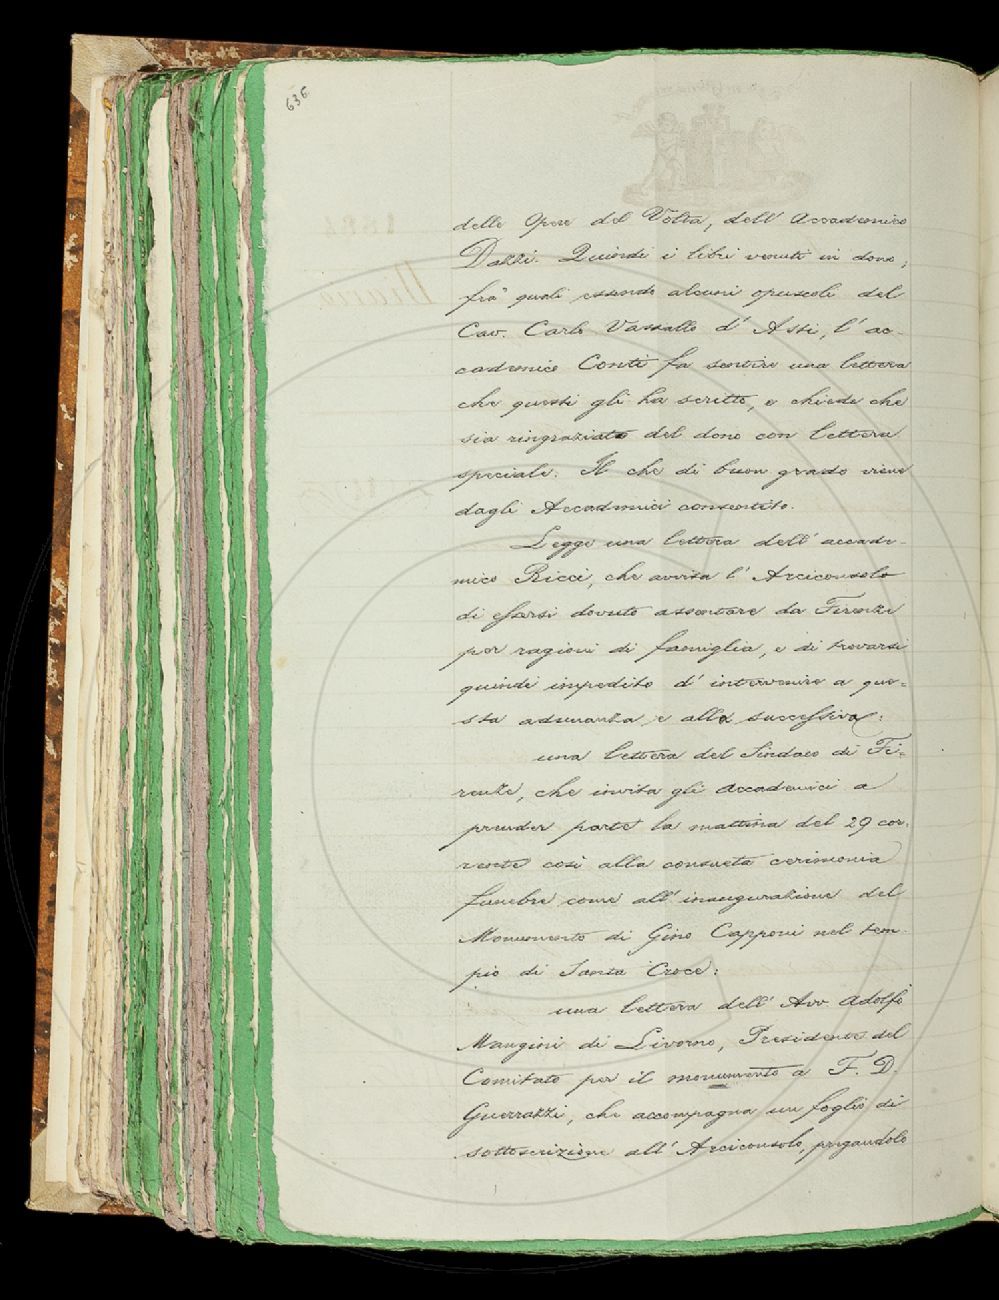 636
delle Opere del Volta, dell' Accademico
Dazzi. Quindi i libri venuti in dono,
fra' quali essendo alcuni opuscoli del
Cav. Carlo Vassallo d' Asti, l' ac-
cademico Conti fa sentire una lettera
che questi gli ha scritto, e chiede che
sia ringraziato del dono con lettera
speciale. Il che di buon grado viene
dagli Accademici consentito.
Legge una lettera dell' accade-
mico Ricci, che avvisa l' Arciconsolo
di essersi dovuto assentare da Firenze
per ragioni di famiglia, e di trovarsi
quindi impedito d' intervenire a que-
sta adunanza, e alla successiva:
una lettera del Sindaco di Fi-
renze, che invita gli Accademici a
prender parte la mattina del 29 cor-
rente così alla consueta cerimonia
funebre come all' inaugurazione del
Monumento di Gino Capponi nel tem-
pio di Santa Croce:
una lettera dell' Avv Adolfo
Mangini di Livorno, Presidente del
Comitato per il monumento a F. D.
Guerrazzi, che accompagna un foglio di
sottoscrizione all' Arciconsolo, pregandolo